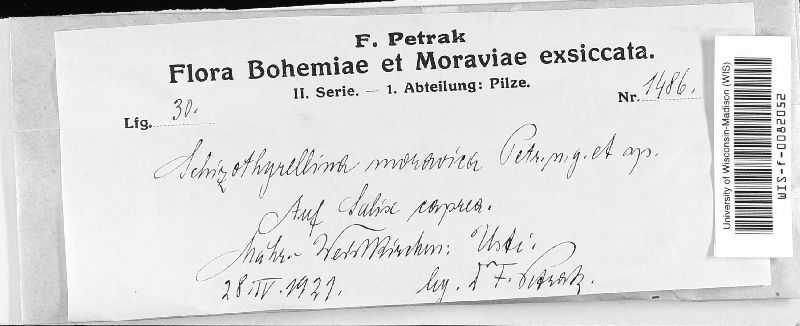 F. Petrak
Flora Bohemiae et Moraviae exsiccata.
II. Serie. — 1. Abteilung: Pilze.
Lfg. 30.
Nr. 1486.
Schizothyrellina moravica Petr. n. g. et sp.
Auf Salix caprea.
Mähr. Weisskirchen: Usti.
28. IV. 1921. leg. Dr F. Petrak.
University of Wisconsin-Madison (WIS)
WIS-f-0082052